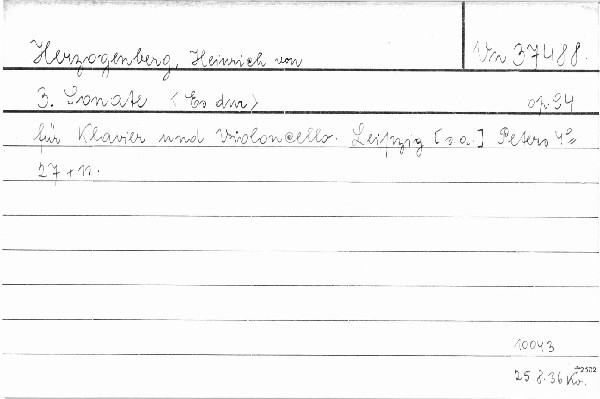 Herzogenberg, Heinrich von
Vn 37488.
3. Sonate <Es dur> op. 94
für Klavier und Violoncello. Leipzig [s.a.] Peters 4°
27 + 11.
10043
25 8.36 Kr.